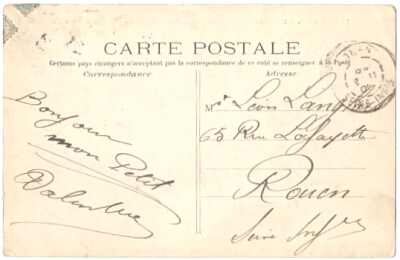 CARTE POSTALE
Certains pays étrangers n'acceptant pas la correspondance de ce coté se renseigner à la Poste
Correspondance
Adresse
Bonjour
mon Petit
Mr Léon
65 Rue Lafayette
Rouen
Seine Infre